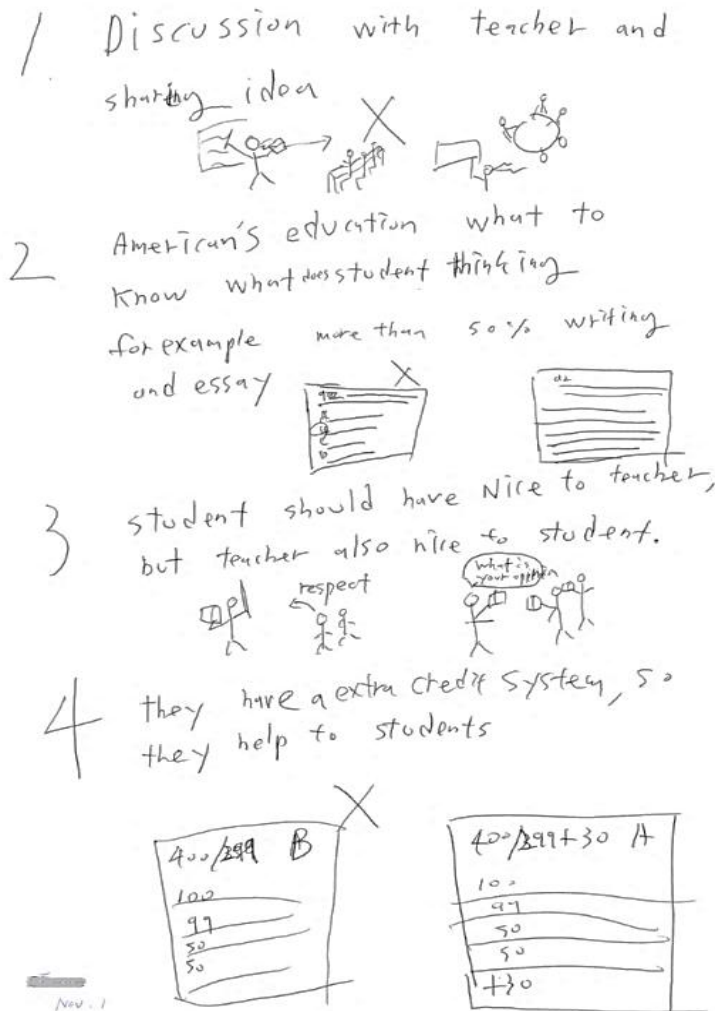 1. Discussion with teacher and
sharing idea
2 American's education what to
know what does student thinking
for example more than 50% writing
and essay
3 student should have Nice to teacher,
but teacher also nice to student.
respect
what is
your
4 they have a extra credit system, so
they help to students
400/399 B
100
99
50
50
400/399+30 A
100
99
50
50
+30
Nov. 1